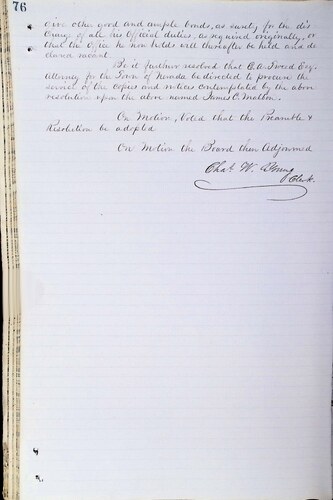 76
Give other good and ample bonds, as surety for the dis
charge of all his Official duties, as required originally, or
that the Office he now holds will thereafter be held and de
clared vacant.
Be it further resolved that C. A. Tweed Esq.
Attorney for the Town of Nevada be directed to procure the
service of the Copies and notices contemplated by the above
resolution upon the above named James C. Malbon.
On Motion, Voted that the Preamble &
Resolution be adopted
On Motion the Board then Adjourned
Chas. W. Young
Clerk.